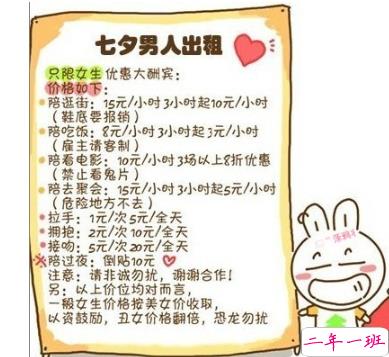 七夕男人出租
只限女生优惠大酬宾:
价格如下:
陪逛街: 15元/小时 3小时起10元/小时
(鞋底要报销)
陪吃饭: 8元/小时 3小时起3元/小时
(雇主请客制)
陪看电影: 10元/小时 3场以上8折优惠
(禁止看鬼片)
陪去聚会: 15元/小时 3小时起5元/小时
(危险地方不去)
拉手: 1元/次 5元/全天
拥抱: 2元/次 10元/全天
接吻: 5元/次 20元/全天
※陪过夜: 倒贴10元
注意: 请非诚勿扰, 谢谢合作!
另: 以上价位均对而言,
一般女生价格按美女价收取,
以资鼓励, 丑女价格翻倍, 恐龙勿扰
二年一班